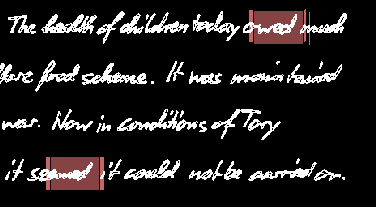 The health of children today owed much
fare food scheme. It was maintained
war. Now in conditions of Tory
it seemed it could not be carried on.